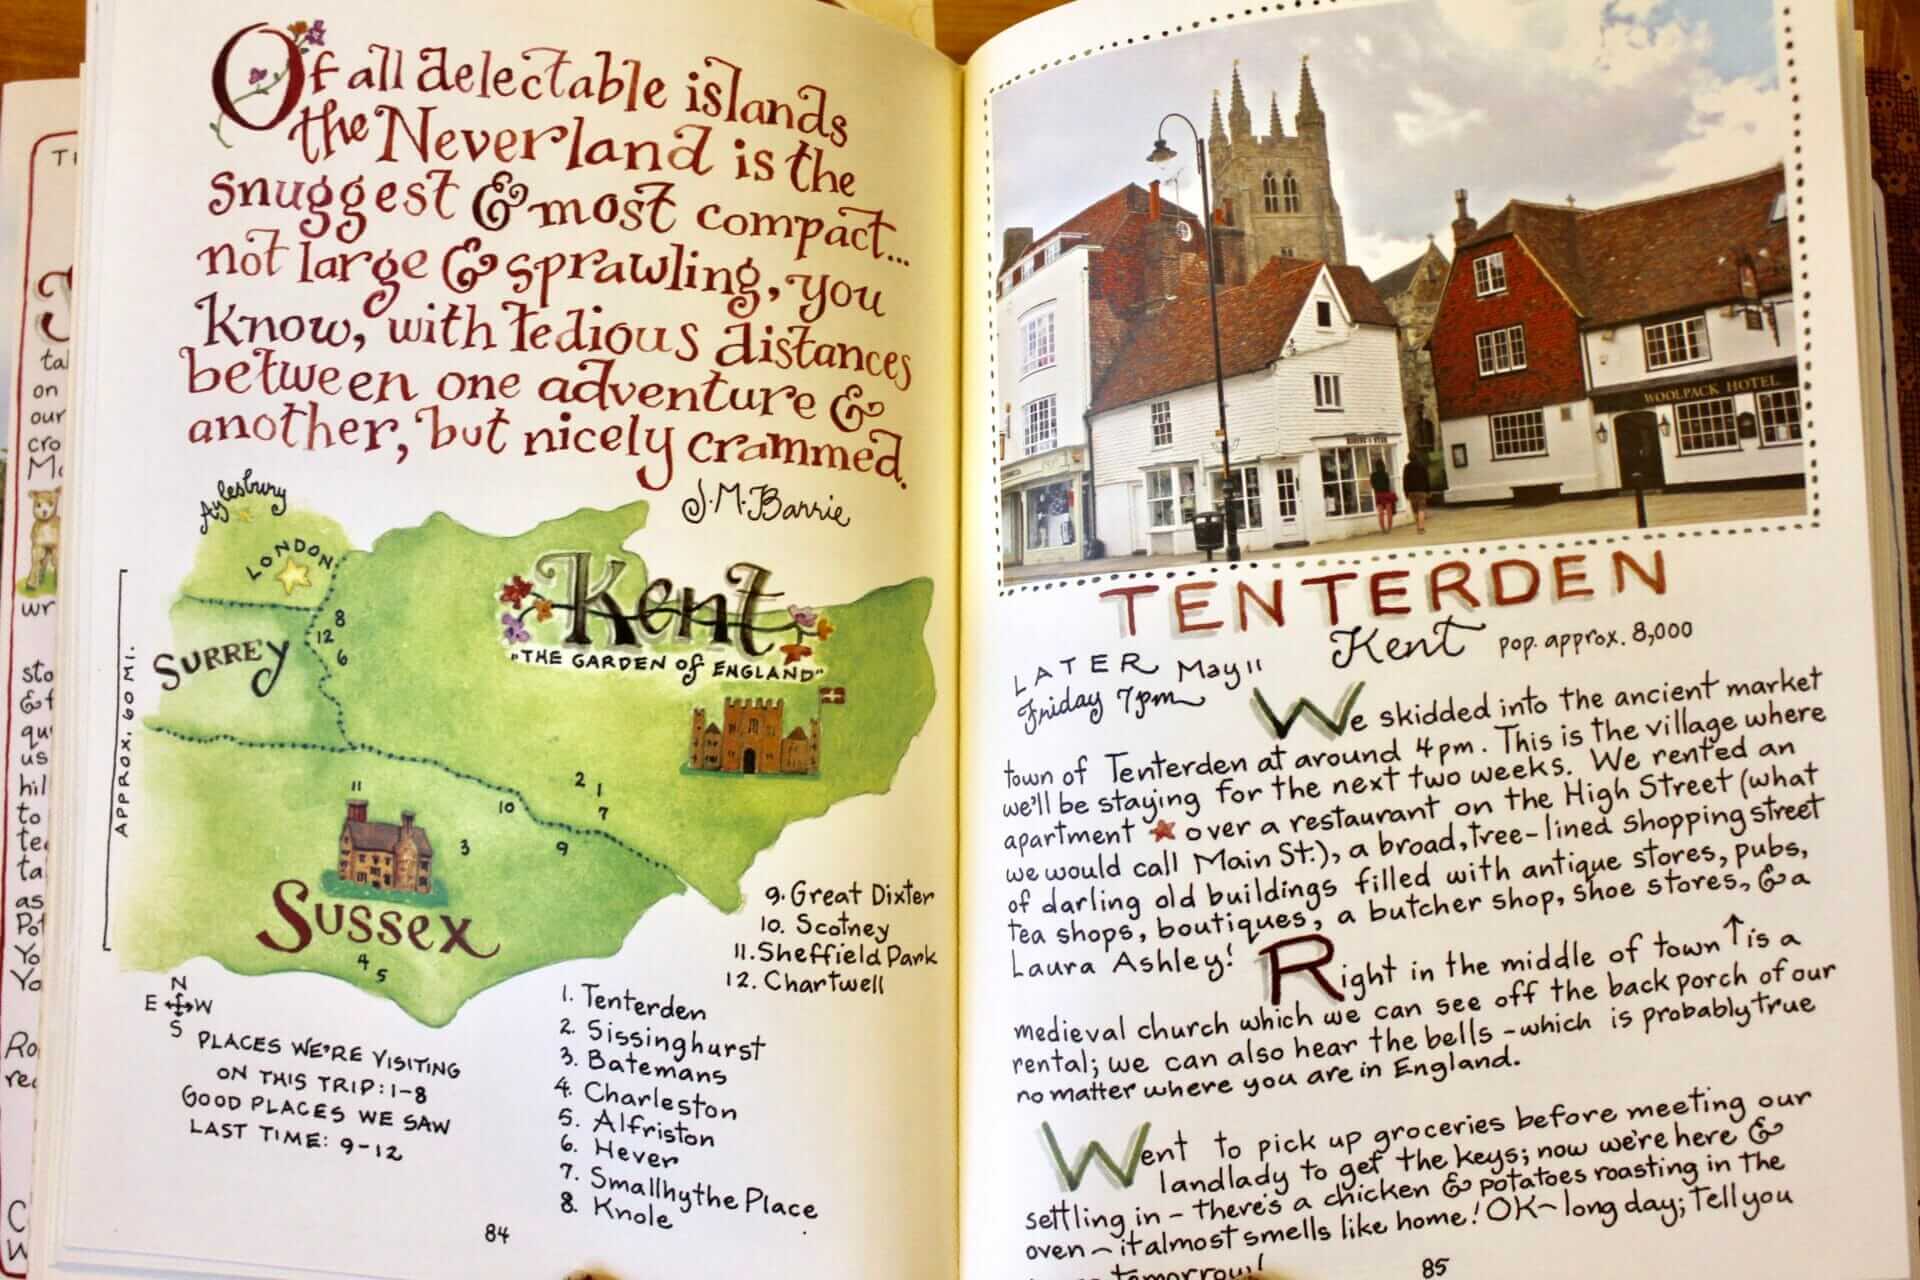 Of all delectable islands
the Neverland is the
snuggest & most compact...
not large & sprawling, you
know, with tedious distances
between one adventure &
another, but nicely crammed.
J.M. Barrie
Aylesbury
LONDON
Kent
"THE GARDEN of ENGLAND"
SURREY
APPROX. 60 MI.
8
12
6
2 1
7
10
9
11
3
SUSSEX
4
5
9. Great Dixter
10. Scotney
11. Sheffield Park
12. Chartwell
N
E W
S
PLACES WE'RE VISITING
ON THIS TRIP: 1-8
GOOD PLACES WE SAW
LAST TIME: 9-12
1. Tenterden
2. Sissinghurst
3. Batemans
4. Charleston
5. Alfriston
6. Hever
7. Smallhythe Place
8. Knole
84
WOOLPACK HOTEL
TENTERDEN
Kent pop. approx. 8,000
LATER May 11
Friday 7pm
We skidded into the ancient market
town of Tenterden at around 4pm. This is the village where
we'll be staying for the next two weeks. We rented an
apartment over a restaurant on the High Street (what
we would call Main St.), a broad, tree-lined shopping street
of darling old buildings filled with antique stores, pubs,
tea shops, boutiques, a butcher shop, shoe stores, & a
Laura Ashley! Right in the middle of town ↑ is a
medieval church which we can see off the back porch of our
rental; we can also hear the bells - which is probably true
no matter where you are in England.
Went to pick up groceries before meeting our
landlady to get the keys; now we're here &
settling in - there's a chicken & potatoes roasting in the
oven ~ it almost smells like home! OK~ long day; Tell you
tomorrow!
85
ta
on
our
cro
wr
sto
& f
qu
us
hil
to
te
ta
as
Pot
Yo
Yo
Ro
re
C
W